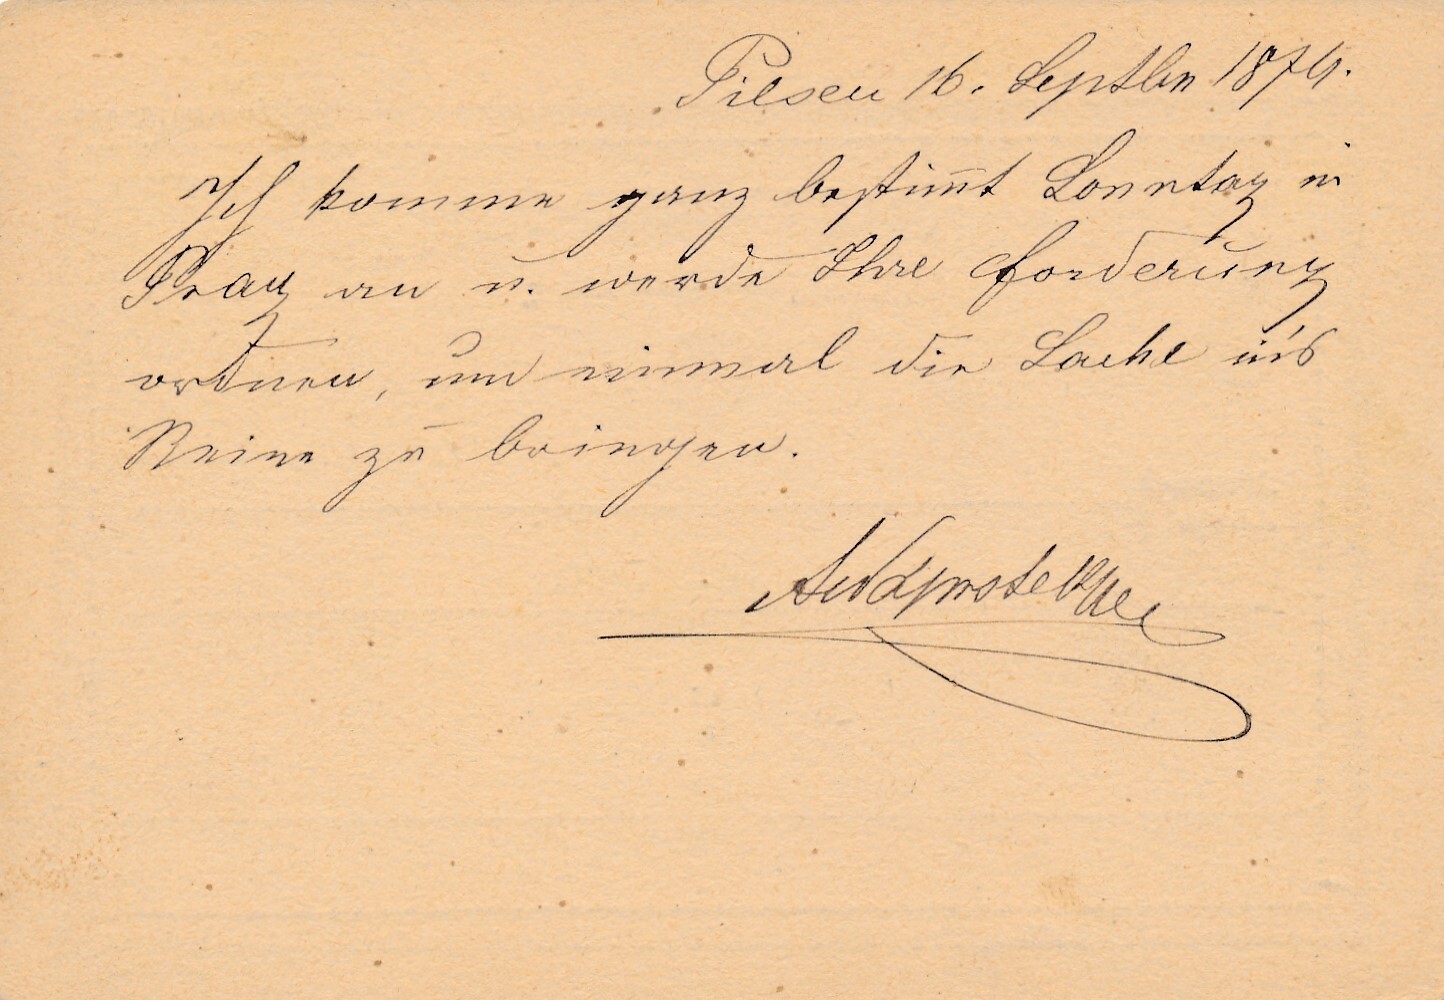 Pilsen 16. Septber 1874.
Ich komme ganz bestimmt Sonntag in
Prag an u. werde Ihre Forderung
ordnen, um einmal die Sache in's
Reine zu bringen.